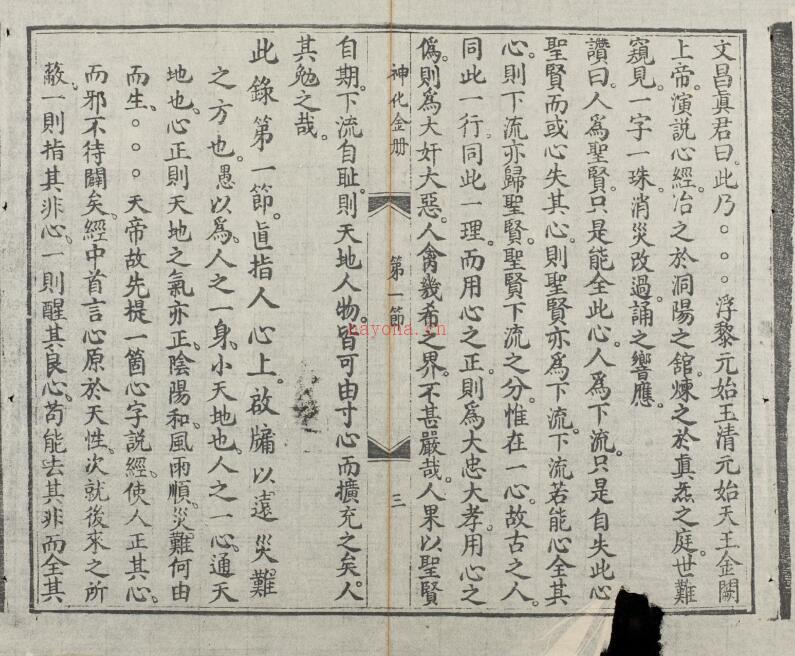 文昌眞君曰。此乃。。。浮黎元始王清元始天王金闕
上帝。演説心經。冶之於洞陽之舘。煉之於眞炁之庭。世難
窺見。一字一珠。消災改過。誦之響應。
讚曰。人爲聖賢。只是能全此心。人爲下流。只是自失此心
聖賢而或心失其心。則聖賢亦爲下流。下流若能心全其
心。則下流亦歸聖賢。聖賢下流之分。惟在一心。故古之人。
同此一行。同此一理。而用心之正。則爲大忠大孝。用心之
僞。則爲大奸大惡。人禽幾希之界。不甚嚴哉。人果以聖賢
神化金册
第一節
三
自期。下流自耻。則天地人物。皆可由寸心而擴充之矣。人
其勉之哉。
此錄第一節。直指人心上。啟牖以遠災難
之方也。愚以爲。人之一身。小天地也。人之一心。通天
地也。心正則天地之氣亦正。陰陽和。風雨順。災難何由
而生。。。。天帝故先提一箇心字説經。使人正其心。
而邪不待闢矣。經中首言心原於天性。次就後來之所
蔽。一則指其非心。一則醒其良心。苟能去其非而全其
nayona.cn